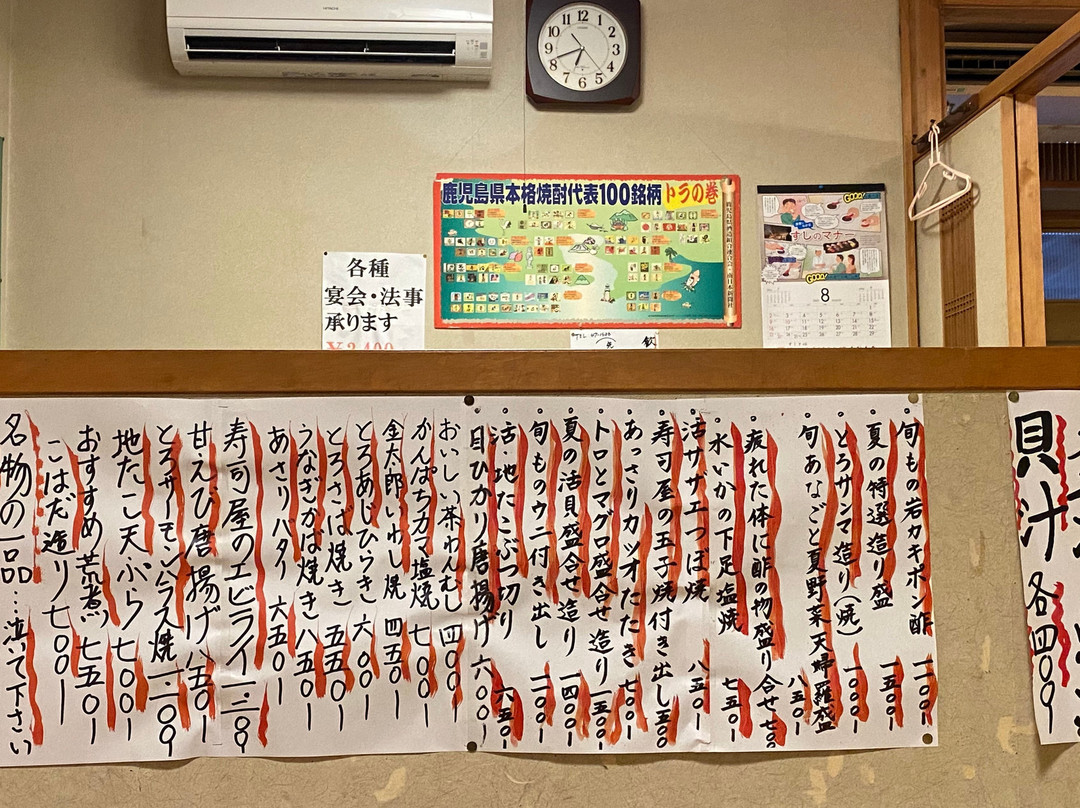 HITACHI
鹿児島県本格焼酎代表100銘柄 トラの巻
各種
宴会・法事
承ります
すしのマナー
8
飲
貝汁 各四〇〇
旬もの岩ガキポン酢 一一〇〇
夏の特選造り盛 一五〇〇
とろサンマ造り(焼) 一一〇〇
旬あなごと夏野菜天婦羅盛 八五〇
疲れた体に酢の物盛り合せ 七〇〇
水いかの下足塩焼 七五〇
活サザエつぼ焼 八五〇
寿司屋の玉子焼付き出し 五〇〇
あっさりカツオたたき 七〇〇
トロとマグロ盛合せ造り 一五〇〇
夏の活貝盛合せ造り 一四〇〇
旬ものウニ付き出し 一一〇〇
活・地たこぶつ切り 六五〇
目ひかり唐揚げ 六〇〇
おいしい茶わんむし 四〇〇
かんぱちカマ塩焼 七〇〇
金太郎いわし焼 四五〇
とろあじひらき 六〇〇
とろさば焼き 五五〇
うなぎかば焼き 八五〇
あさりバター 六五〇
寿司屋のエビフライ 一三〇〇
甘えび唐揚げ 八五〇
とろサーモンハラス焼 一一〇〇
地たこ天ぷら 七〇〇
おすすめ荒煮 七五〇
こはだ造り 七〇〇
名物の一品…泣いて下さい